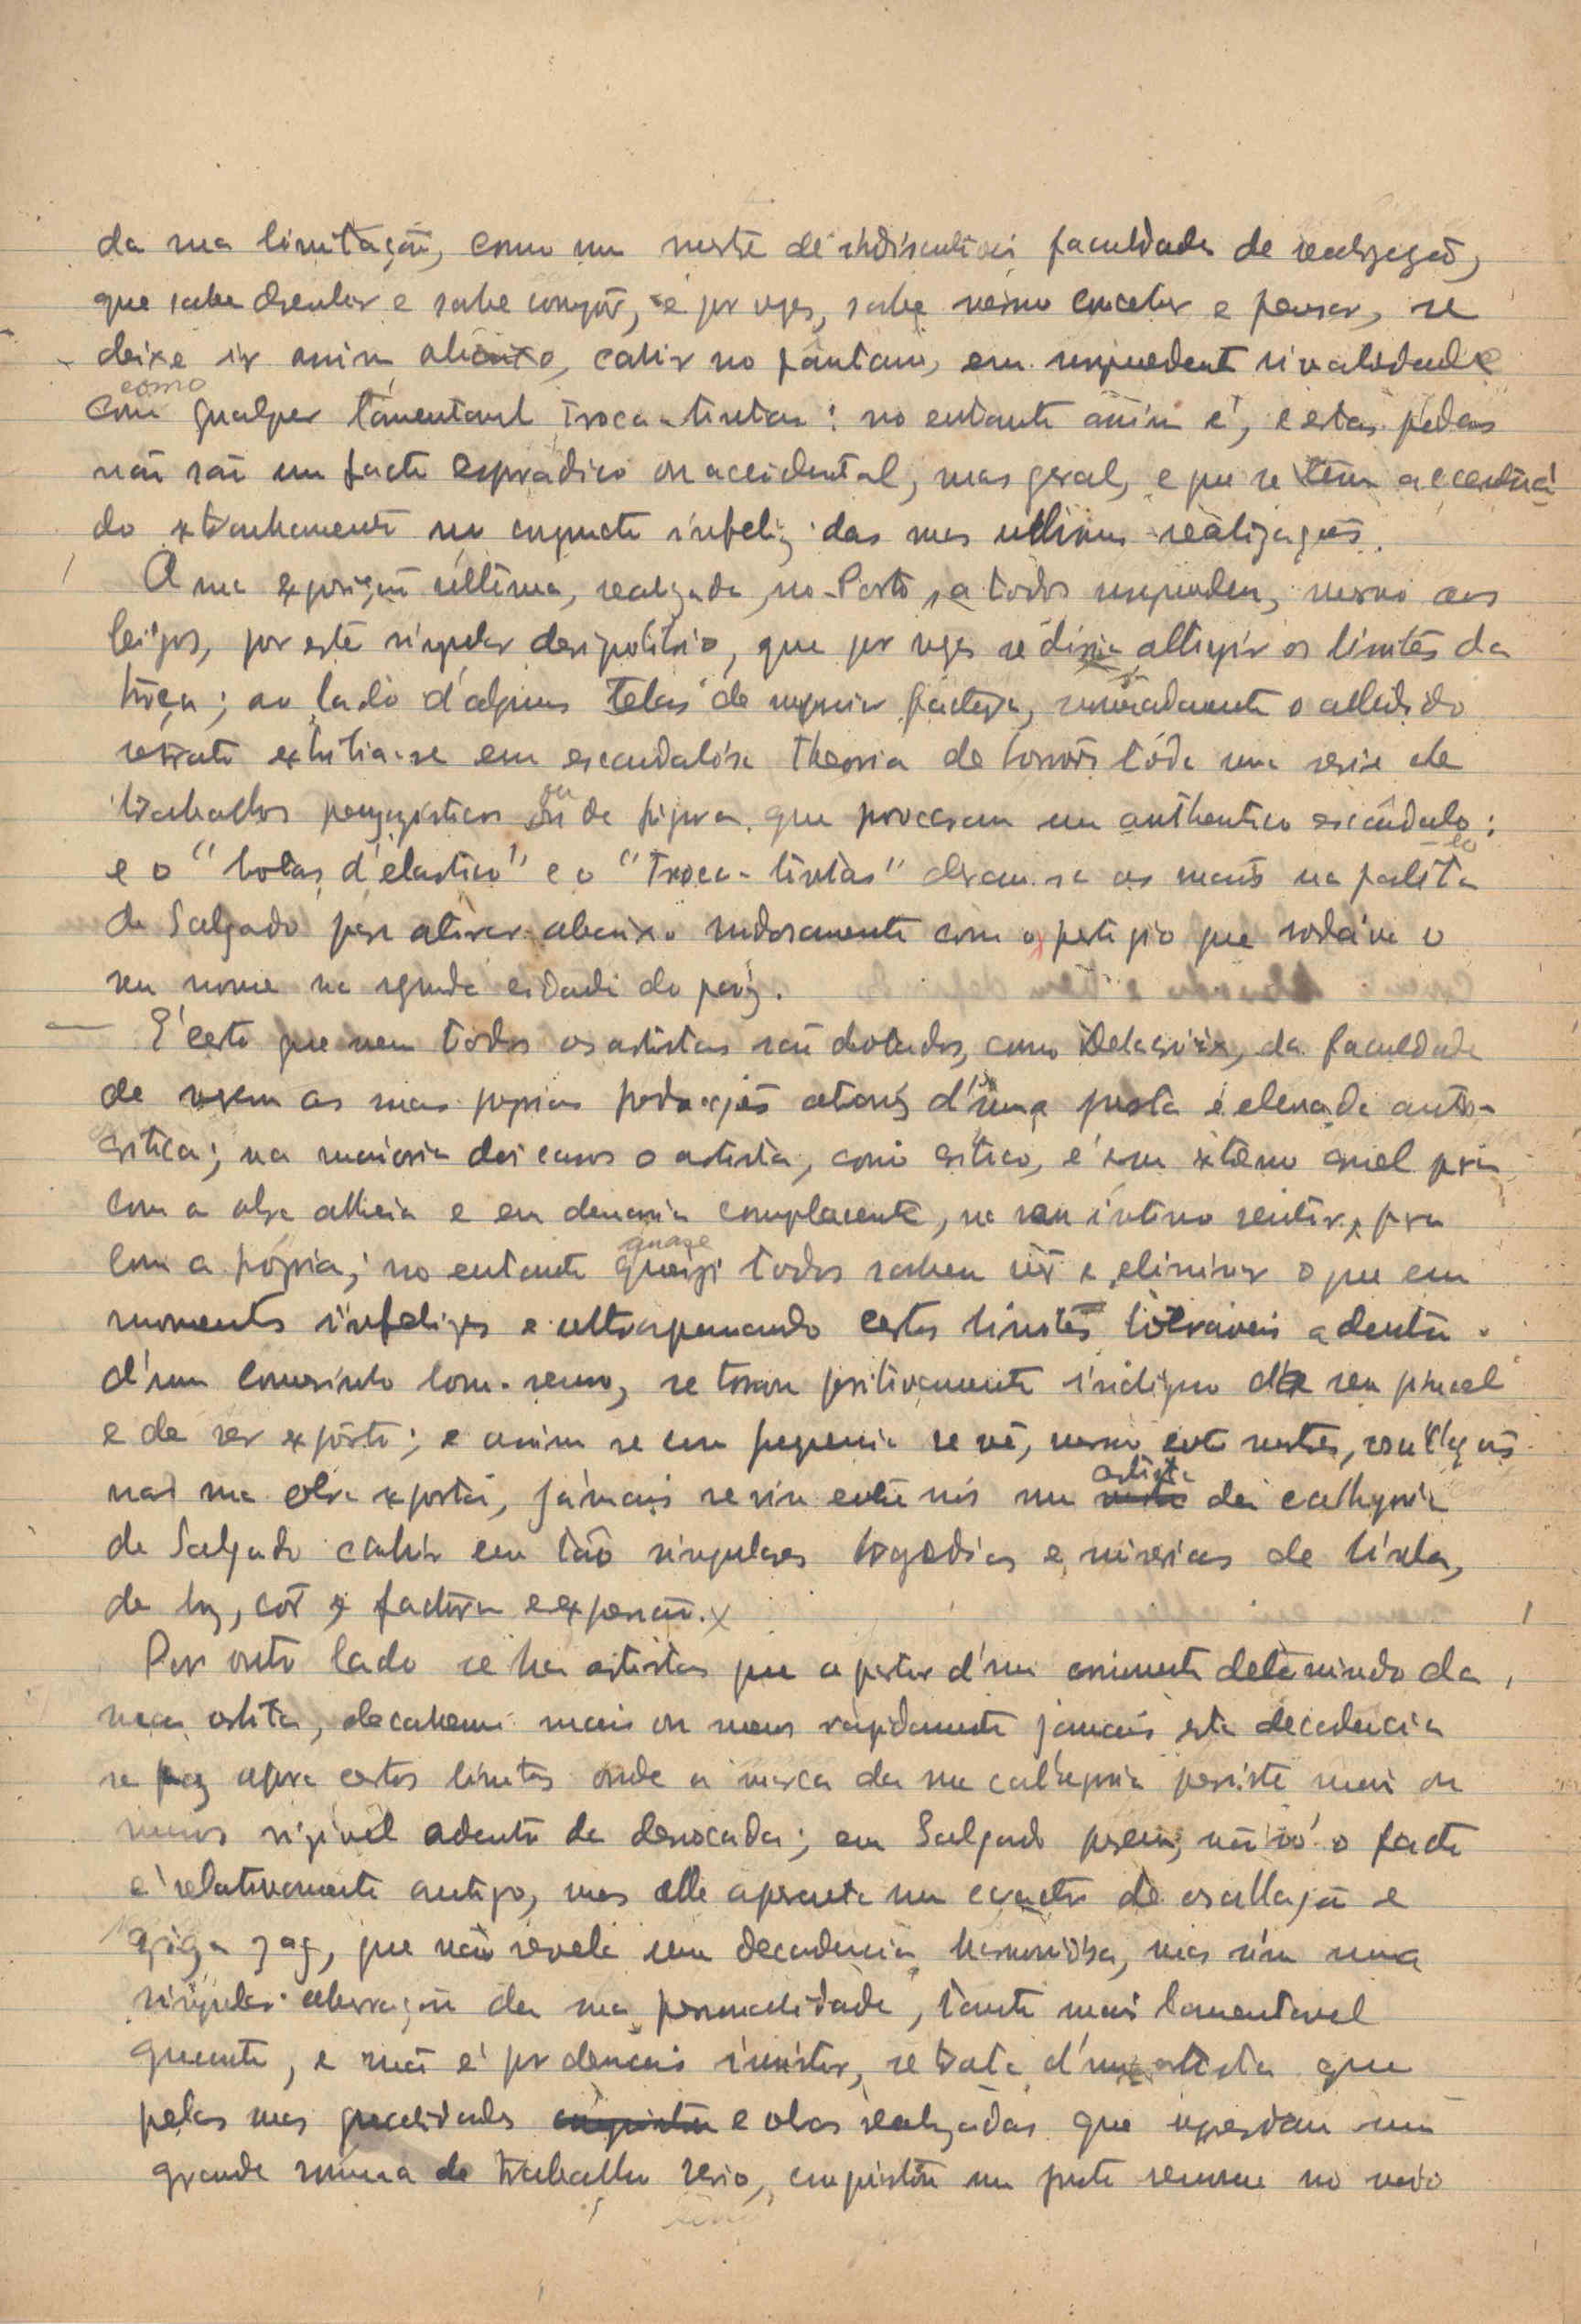 da sua limitação, como um mestre de indiscutivel faculdade de realização,
que sabe desenhar e sabe compôr, e por vezes, sabe mesmo conceber e pensar, se
deixe ir assim abaixo, cahir no pantano, em surprehendente rivalidade
como
com qualquer lamentavel troca-tintas: no entanto assim é, e estas quédas
não são um facto esporadico ou accidental, mas geral, e que se tem accentuá
do extranhamente no conjuncto infeliz das suas ultimas realizações.
A sua exposição ultima, realizada no Porto, a todos surprehendeu, mesmo aos
leigos, por este singular desiquilibrio, que por vezes se diria attingir os limites da
troça; ao lado d'algumas telas de superior factura, o alludido
retrato exhibia-se em escandalósa theoria de horrôres tôda uma serie de
ou
trabalhos paysagisticos ou de figura que provocaram um authentico escândalo:
e o "botas d'élastico" e o "troca-tintas" deram-se as mãos na palêta
de Salgado para atirar abaixo ruidosamente com o prestigio que rodáva o
seu nome na segunda cidade do paiz.
É certo que nem todos os artistas são dotados, como Delacroix, da faculdade
de verem as suas proprias producções atravez d'uma justa e elevada auto-
critica; na maioria dos casos o artista, como critico, é em extremo cruel pra
com a obra alheia e em demasia complacente, no seu intimo sentir, pra
quase
com a própria; no entanto quasi todos sabem vêr e eliminar o que em
momentos infelizes e ultrapassando certos limites toleraveis adentro
d'um comesinho bom-senso, se torna positivamente indigno do seu pincel
e de ser expósto; e assim se com frequencia se vê, mesmo entre mestres, oscillações
artista
na sua obra exposta, jámais se viu entre nós um mestre da cathegoria
de Salgado cahir em tão singulares tragedias e miserias de tinta,
de luz, côr e factura e expressão.
Por outro lado se ha artistas que a partir d'um momento determinado da
sua orbita, decahem mais ou menos rapidamente jamais esta decadencia
se faz certos limites onde a marca da sua cathegoria persiste mais ou
menos visivel adentro da derrocada; em Salgado porem, não só o facto
é relativamente antigo, mas elle apresenta um caracter de oscillação e
ziga zag, que não revela uma decadencia harmoniósa, mas sim uma
singular aberração da sua personalidade, tanto mais lamentavel
quanto, e não é por demais insistir, se trata d'um artista que
pelas suas qualidades conquistou e obras realizadas que representam uma
grande somma de trabalho serio, conquistou um justo renome no meio